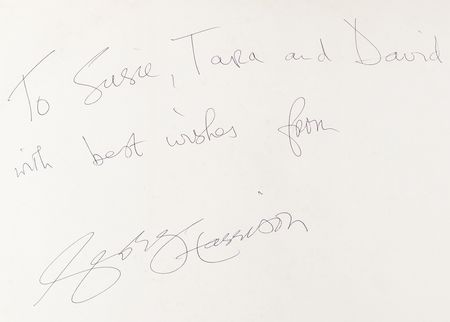 To Susie, Tara and David
with best wishes from
George Harrison